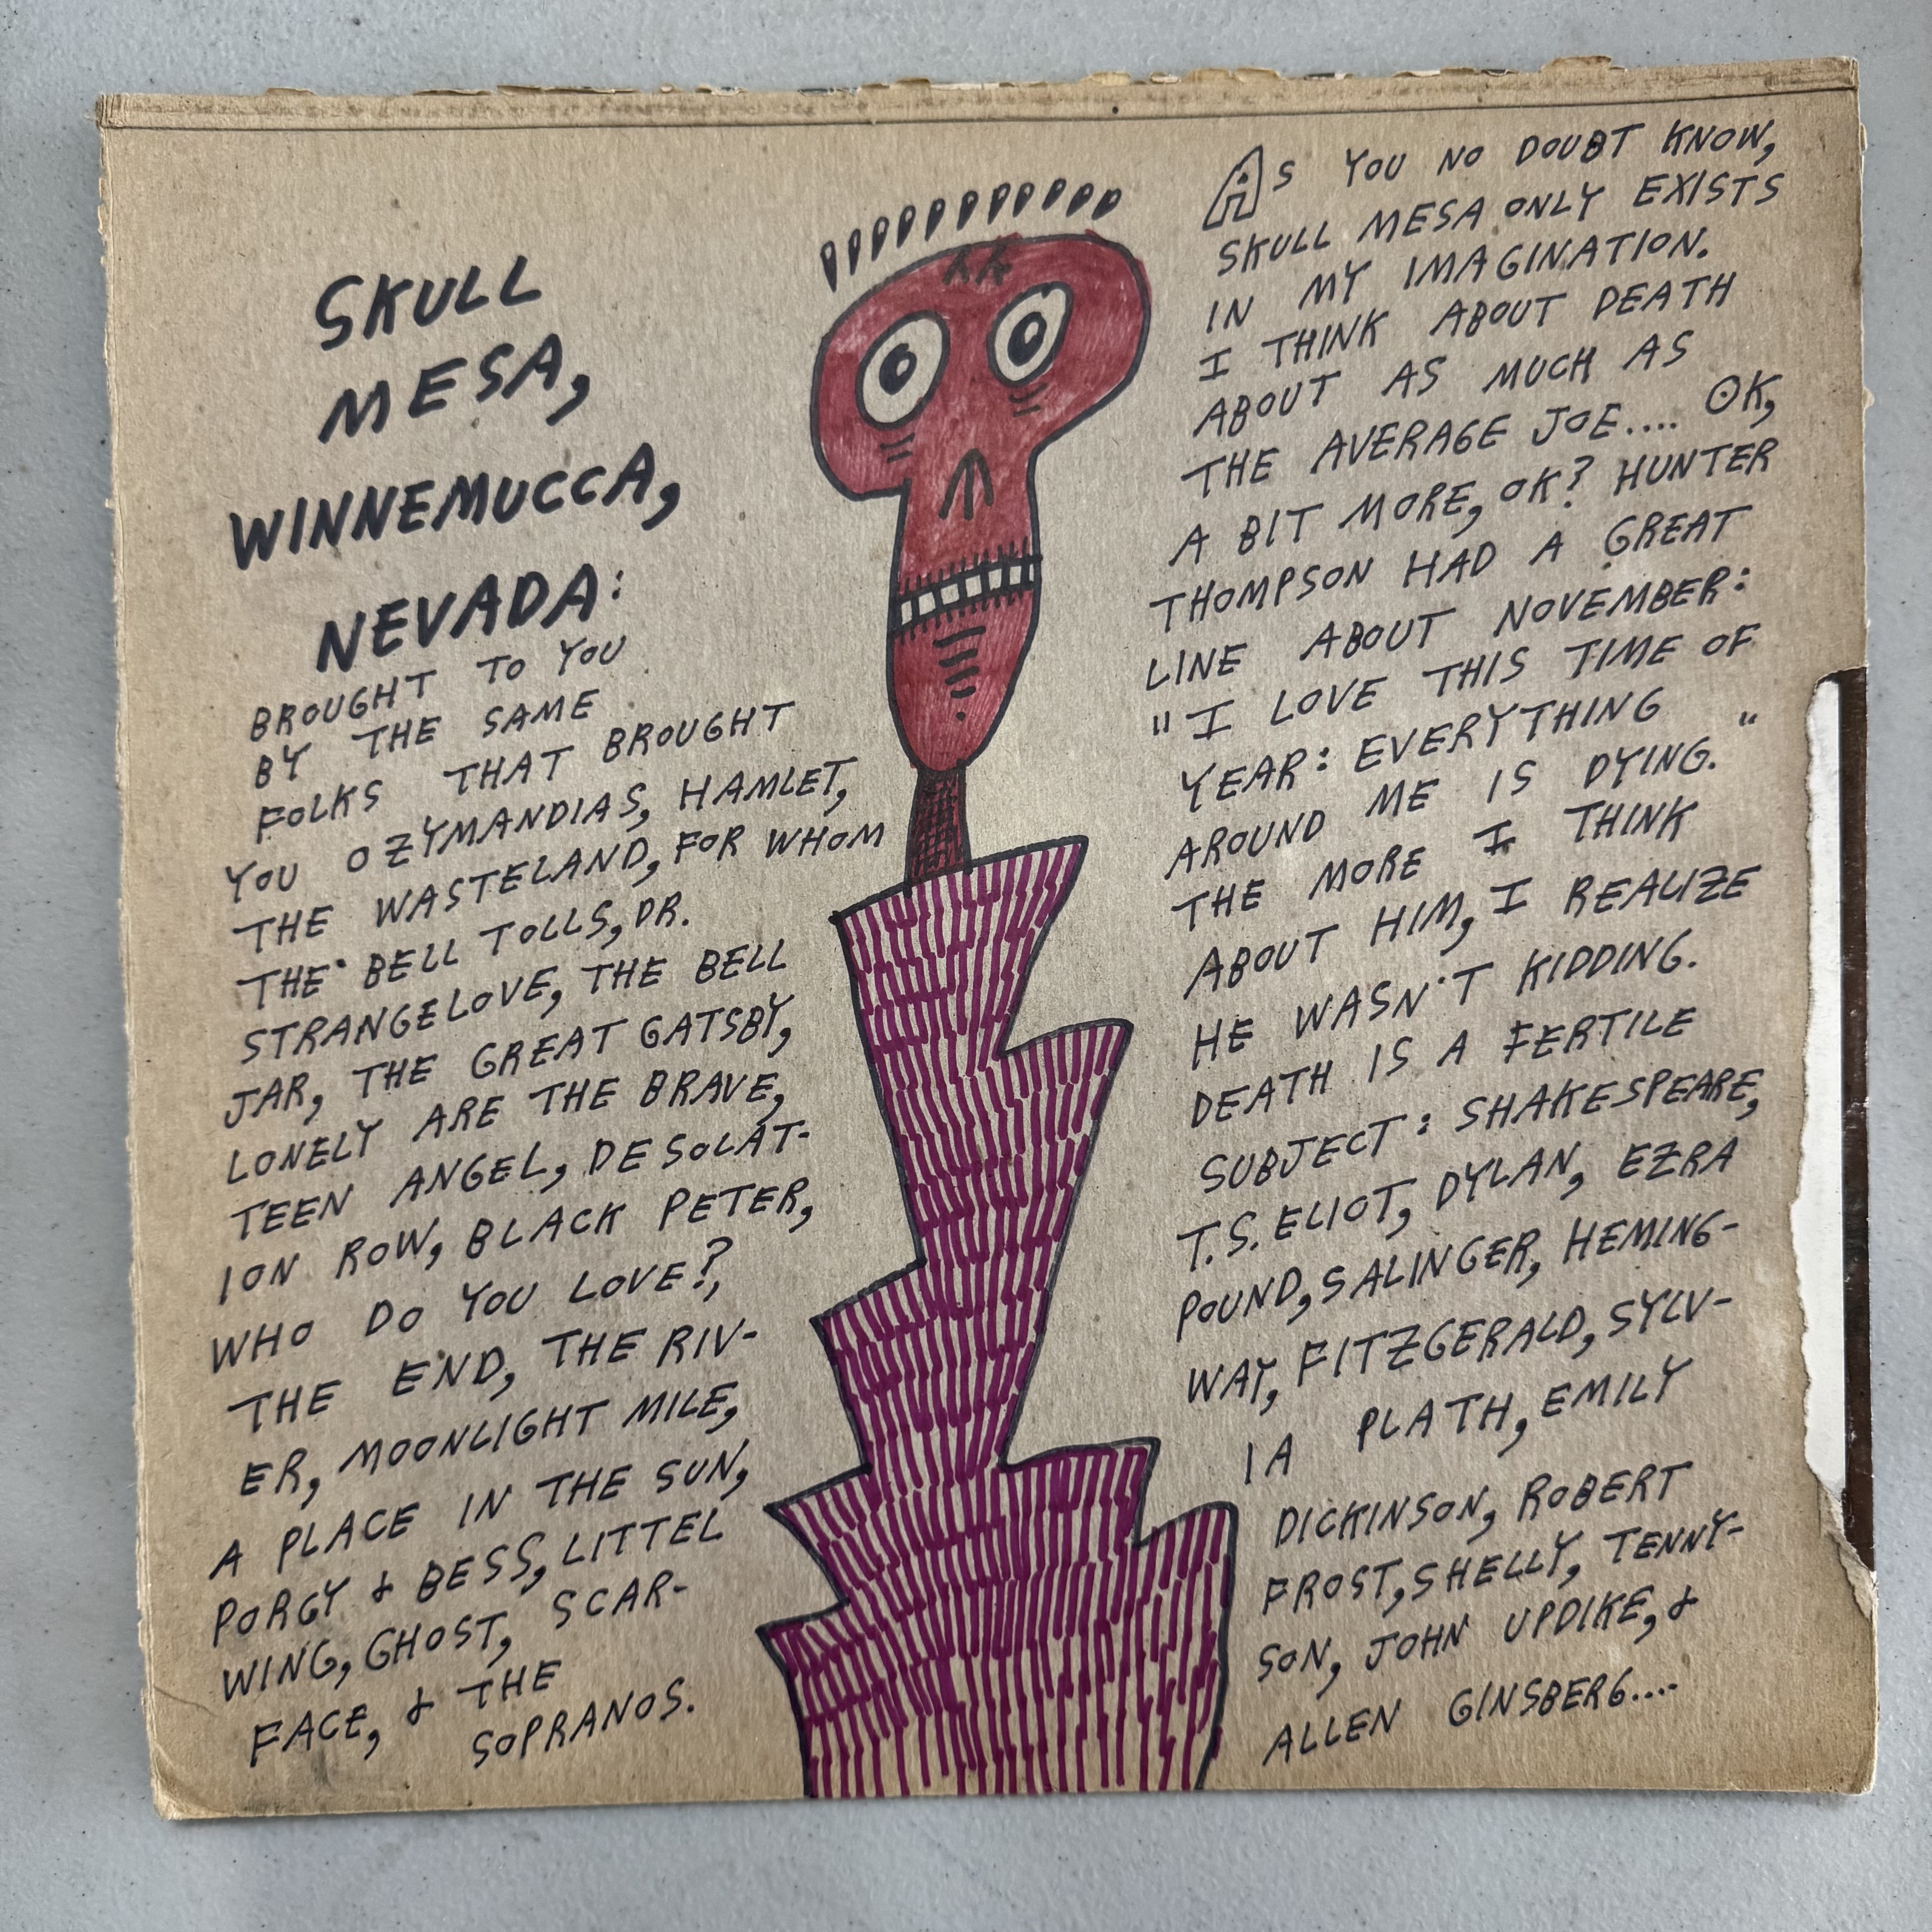 SKULL
MESA,
WINNEMUCCA,
NEVADA:
BROUGHT TO YOU
BY THE SAME
FOLKS THAT BROUGHT
YOU OZYMANDIAS, HAMLET,
THE WASTELAND, FOR WHOM
THE BELL TOLLS, DR.
STRANGELOVE, THE BELL
JAR, THE GREAT GATSBY,
LONELY ARE THE BRAVE,
TEEN ANGEL, DESOLAT-
ION ROW, BLACK PETER,
WHO DO YOU LOVE?,
THE END, THE RIV-
ER, MOONLIGHT MILE,
A PLACE IN THE SUN,
PORGY & BESS, LITTEL
WING, GHOST, SCAR-
FACE, & THE
SOPRANOS.
AS YOU NO DOUBT KNOW,
SKULL MESA ONLY EXISTS
IN MY IMAGINATION.
I THINK ABOUT DEATH
ABOUT AS MUCH AS
THE AVERAGE JOE.... OK,
A BIT MORE, OK? HUNTER
THOMPSON HAD A GREAT
LINE ABOUT NOVEMBER:
"I LOVE THIS TIME OF
YEAR: EVERYTHING
AROUND ME IS DYING."
THE MORE I THINK
ABOUT HIM, I REALIZE
HE WASN'T KIDDING.
DEATH IS A FERTILE
SUBJECT: SHAKESPEARE,
T.S. ELIOT, DYLAN, EZRA
POUND, SALINGER, HEMING-
WAY, FITZGERALD, SYLV-
IA PLATH, EMILY
DICKINSON, ROBERT
FROST, SHELLY, TENNY-
SON, JOHN UPDIKE, &
ALLEN GINSBERG....